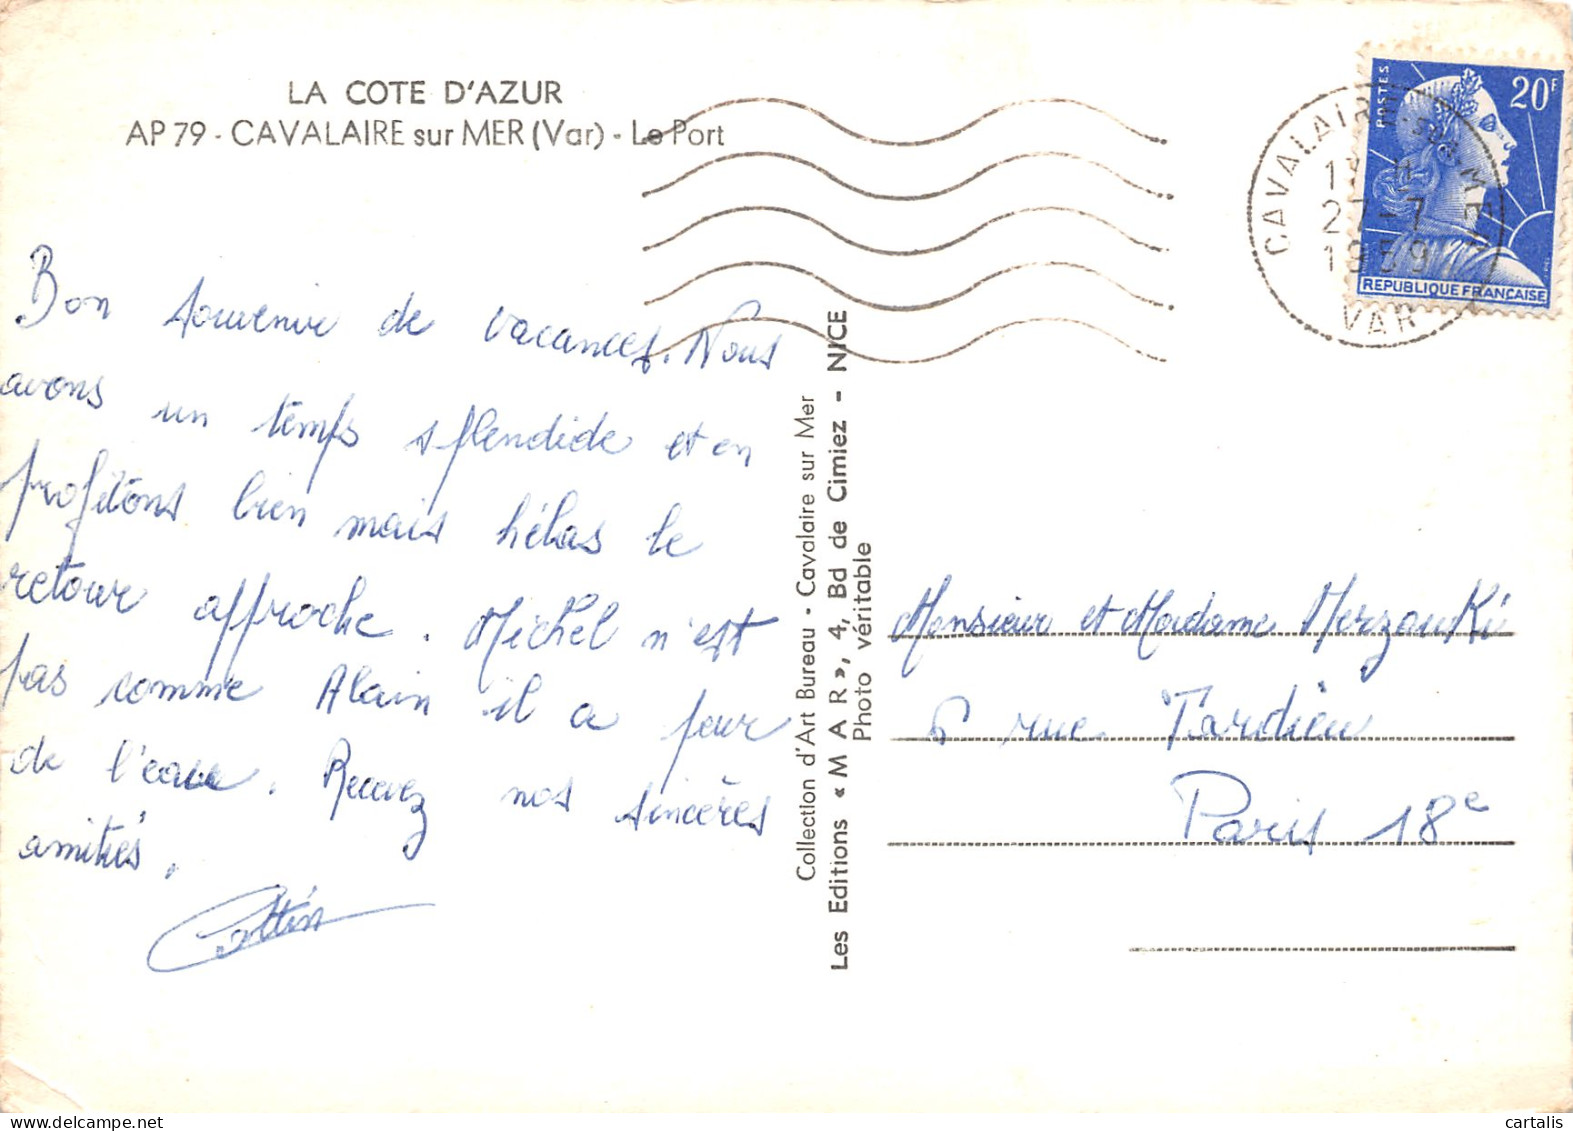 LA COTE D'AZUR
AP 79 - CAVALAIRE sur MER (Var) - Le Port
Bon souvenir de vacances. Nous
avons un temps splendide et en
profitons bien mais hélas le
retour approche. Michel n'est
pas comme Alain il a peur
de l'eau. Recevez nos sincères
amitiés.
Cottin
Collection d'Art Bureau - Cavalaire sur Mer
Les Editions « M A R », 4, Bd de Cimiez - NICE
Photo véritable
POSTES
20F
REPUBLIQUE FRANÇAISE
CAVALAIRE-SUR-MER
27-7
1959
VAR
Monsieur et Madame Merzouki
rue Tardieu
Paris 18e
cartalis